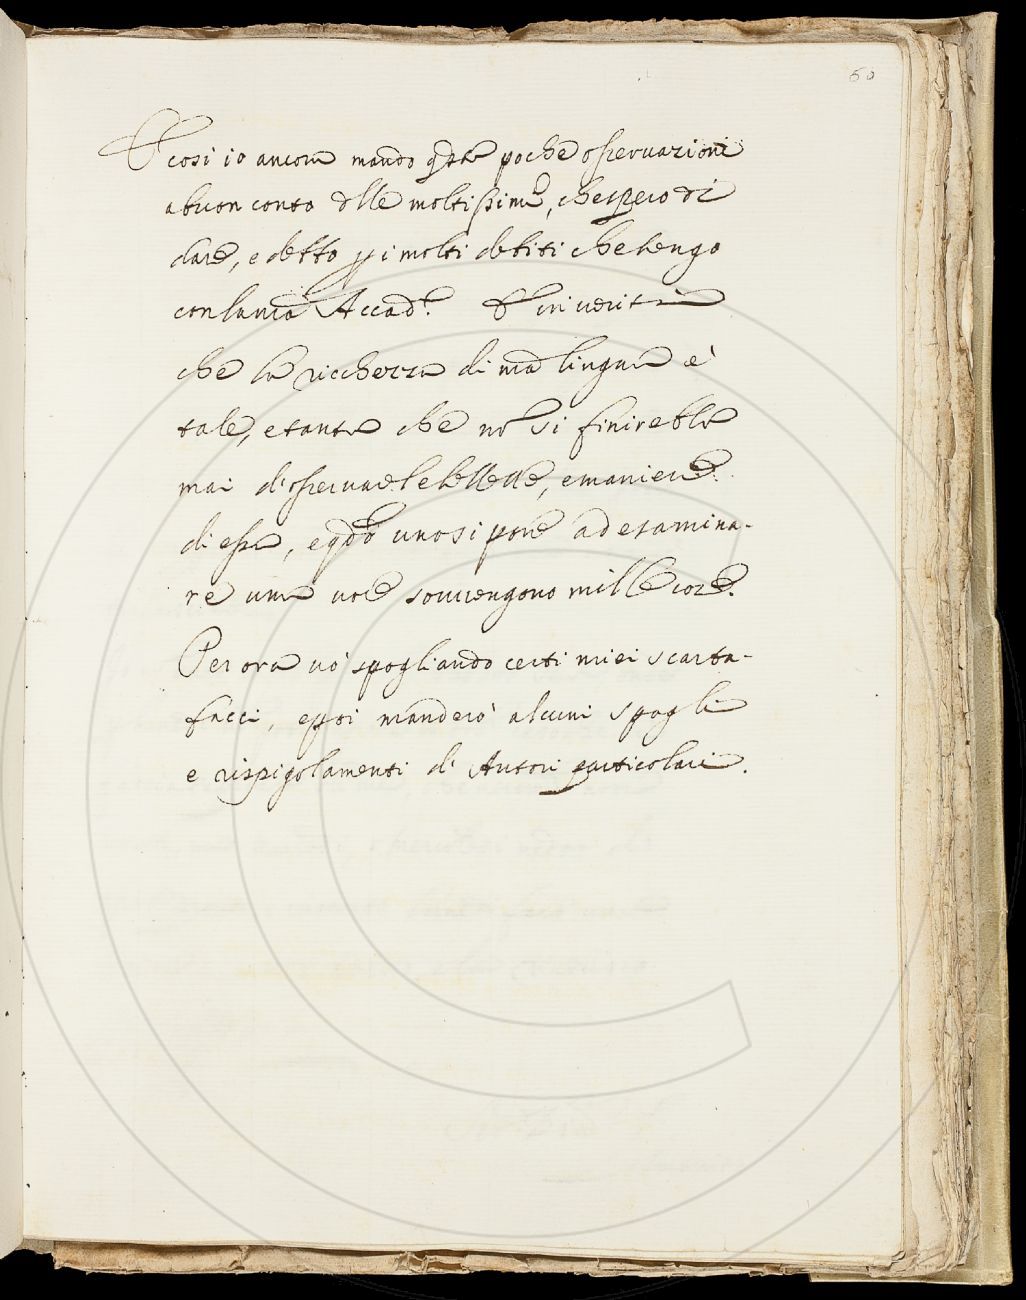 50
E così io ancora mando q.ste poche osservazioni
a buon conto d.lle moltissime, che spero di
dare, e debbo p i molti debiti che tengo
con la n.ra Accad.a E in verità
che la ricchezza di n.ra lingua è
tale, e tanta che nõ si finirebbe
mai d'osservare le bellezze, e maniere
di essa, e q.do uno si pone ad esamina-
re una voce sovvengono mille cose.
Per ora vò spogliando certi miei scarta-
facci, e poi manderò alcuni spogli
e rispigolamenti di Autori particolari.